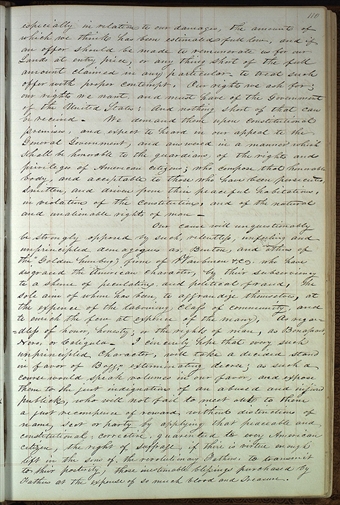 especially in relation to our damages, the amount of
which we think has been estimated full low, and if
an offer should be made to remunerate us for our
Lands at entry price, or any thing short of the full
amount claimed in any particular to treat such
offer with proper contempt. Our rights we ask for;
our rights we want, and must have of the Government
of the United States: And nothing short of that can
be received. We demand them upon constitutional
premises, and expect to be heard in our appeal to the
General Government, and answered in a manner which
shall be honorable to the guardians of the rights and
privileges of American citizens; who compose that honorable
body, and acceptable to those who have been persecuted
smitten, and driven from their peaceful habitations,
in violation of the Constitution, and of the natural
and unalienable rights of man —
Our cause will unquestionably
be strongly opposed by such, violently, infuriated and
unprincipled demagogues as Benton, and others of
the "Golden humbug" firm of & Co. who have
disgraced the American character, by their subserviency
to a scheme of peculating and political fraud, the
sole aim of whom has been, to aggrandize themselves, at
the expense of the laboring class of community, and
to enrich the poor at expense of the many; As regard
dless of honor, honesty, or the rights of man, as Bonapar
Nero, or Caligula. I sincerely hope that every such
unprincipled character, will take a decided stand
in favor of Boggs' exterminating decree; as such a
course would speak volumes in our favor, and expose
them to the just indignation of an abused and injured
public, who will not fail to mete out to them
a just recompense of reward, without distinction of
name, sect or party by applying that peaceable and
constitutional corrective, guaranteed to every American
citizen, the right of suffrage; if there is virtue enough
left in the sons of the revolutionary Fathers to transmit
to their posterity; those inestimable blessings purchased by
Fathers at the expense of so much blood and treasure.